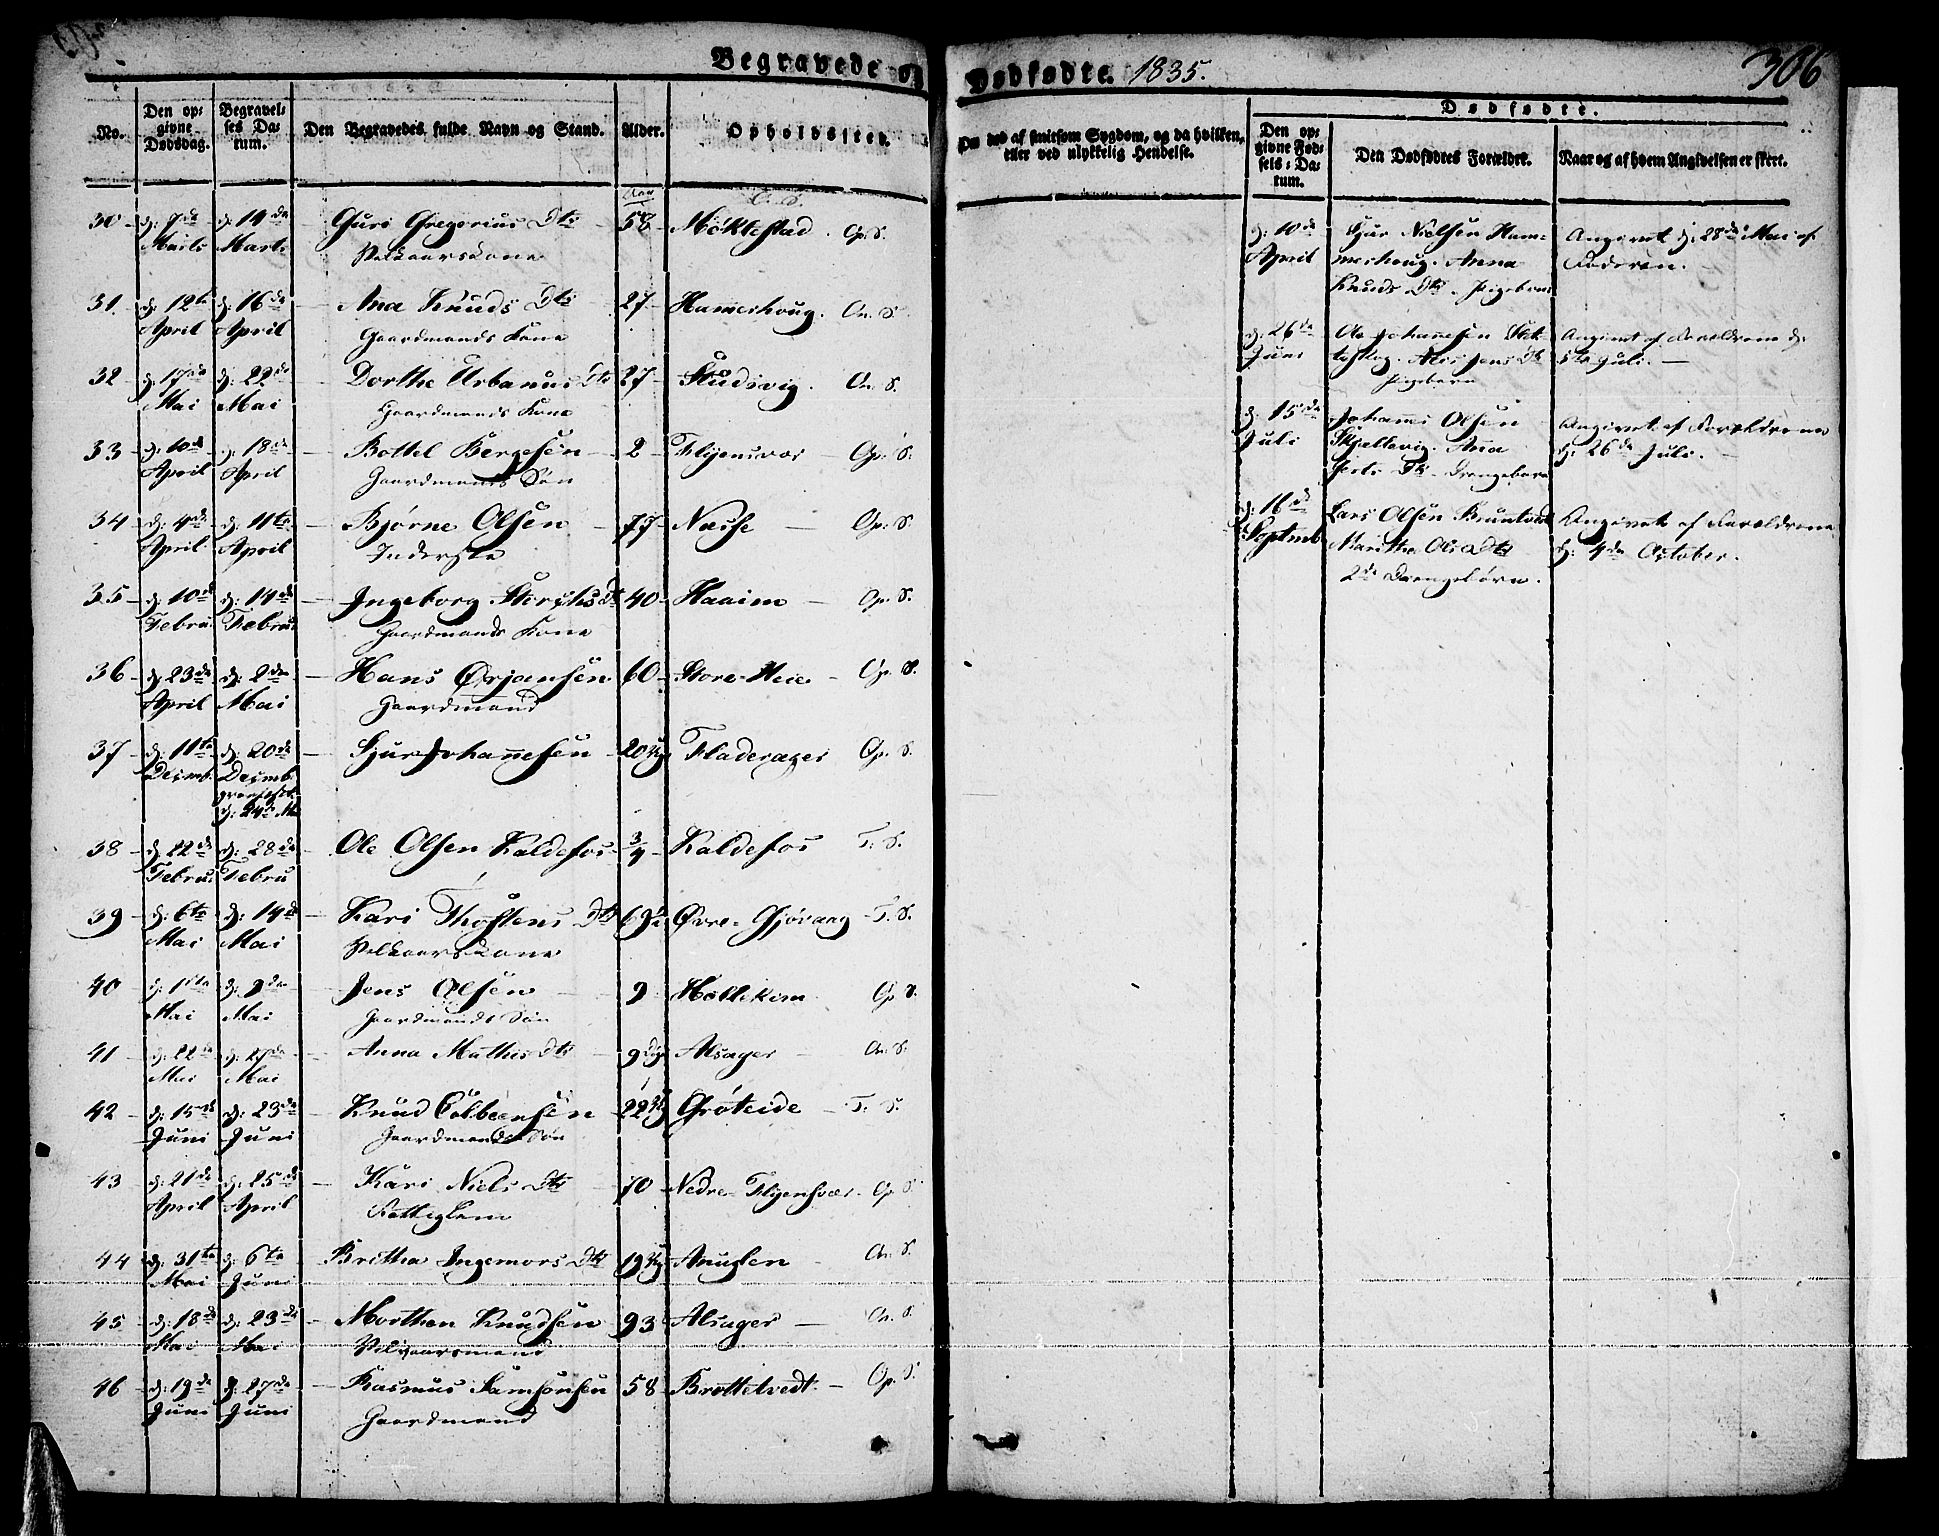 Begravede og Dødfødte. 1835.
306
No.
Den opgivne Dødsdag.
Begravelses Datum.
Den Begravedes fulde Navn og Stand.
Alder.
Opholdssted.
Om død af smitsom Sygdom, og da hvilken, eller ved ulykkelig Hendelse.
Dødfødte.
Den opgivne Fødsels-Datum.
Den Dødfødtes Forældre.
Naar og af hvem Angivelsen er skeet.
30 d: 7de d: 14de Guri Gregorius Dtr 58 Møktestad. Op. S.
Marts Marts
31. d: 12te d: 16de Ana Knuds Dtr 27 Hammerhoug. On. S.
April April Gaardmands Kone
32 d: 17de d: 22de Dorthe Urbanus Dtr 27 Skudsvig. On. S.
Mai Mai Gaardmands Kone
33 d: 10de d: 18de Bottel Bergesen 2 Op. S.
April April Gaardmands Søn
34 d: 4de d: 11te Bjørne Olsen 77 Næsse Op. S.
April April Inderste
35 d: 10de d: 14de Ingeborg Dtr 40 Haaim Op. S.
Febru. Febru. Gaardmands Kone
36 d: 23de d: 2den Hans Ørjansen 60 Store-Heie Op. S.
April Mai Gaardmand
37 d: 11te d: 20de Sjur Johannesen 20 Fladerager Op. S.
Decmb. Decmb.
d: 24de
38 d: 22de d: 28de Ole Olsen Kaldefos 3/4 Kaldefos F. S.
Febru. Febru
39 d: 6te d: 14de Kari Thostens Dtr Øvre-Gjøvaag F. S.
Mai Mai
40 Jens Olsen 9 Op S.
Mai Mai Gaardmands Søn
41 d: 22de d: 27de Anna Mathis Dtr 9 Alsager On. S.
Mai Mai
42 d: 15de d: 23de Knud 22 Grøteide F. S.
Juni Juni Gaardmands Søn
43 d: 21de d: 25de Kari Niels Dtr 70 Nedre Op S.
April April Fattiglem
44 d: 31te d: 6te Britha Ingemors Dtr 19 Anuglen On. S.
Mai Juni
45 d: 18de d: 23de Morthen Knudsen 93 Alsager On. S.
Mai Mai
46 d: 19de d: 27de Rasmus Samsonsen 58 Brottetvedt. Op. S.
Juni Juni Gaardmand
d: 10de Sjur Nielsen Ham- Angivet d: 28de Mai af
April merhoug. Anna Faderen.
Knuds Dtr. Pigebarn
d: 26de Ole Johannesen Angivet af Forældrene d:
Juni Jens Dtr 5te Juli.
Pigebarn
d: 15de Johannes Olsen Angivet af Forældrene
Juli Skjellevig. Anna d: 26de Juli.
Dtr. Drengebarn
d: 16de Lars Olsen Angivet af Forældrene
Septmb. Maritha Ols Dtr d: 4de October.
2de Drengebørn.